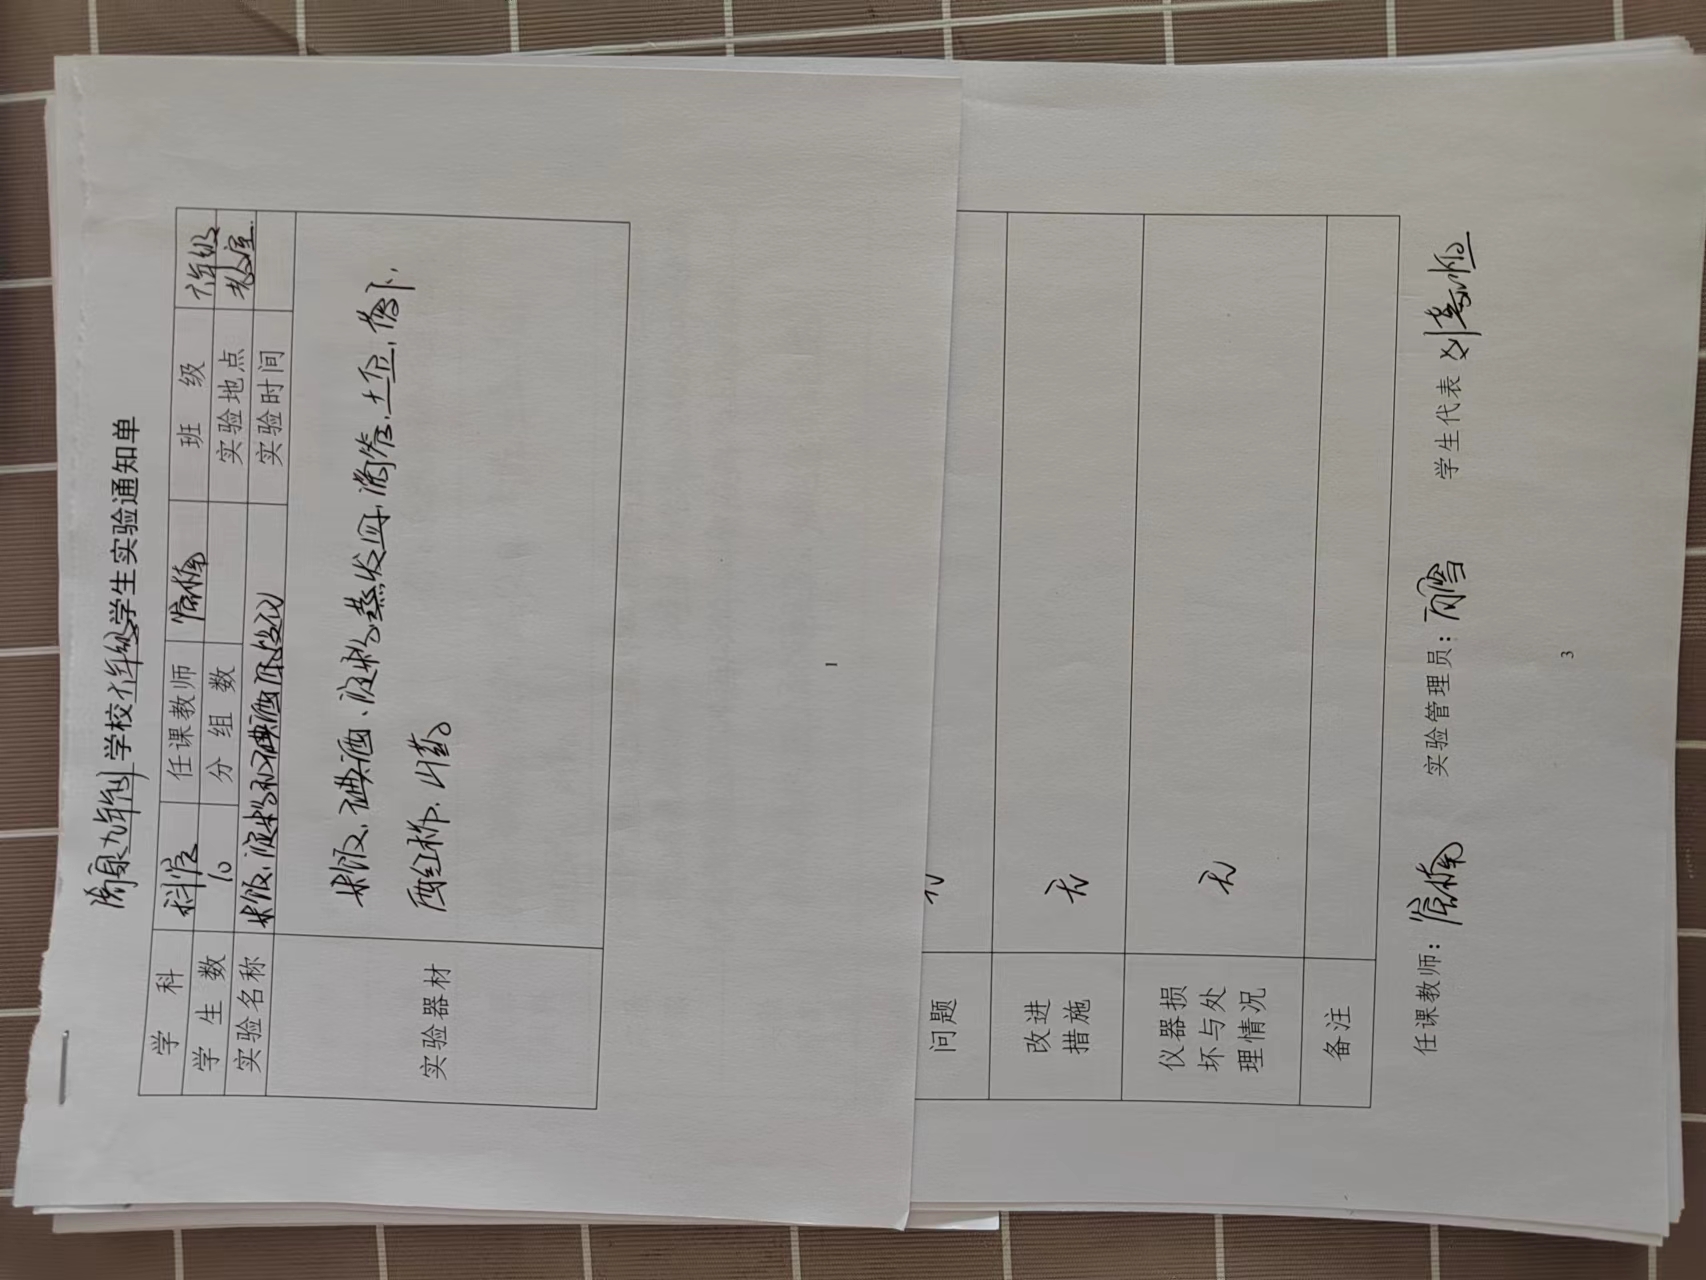 九年制学校六年级学生实验通知单
学科 科学 任课教师 班级 六年级
学生数 10 分组数 实验地点 教室
实验名称 米饭、淀粉和碘酒的反应 实验时间
实验器材
米饭、碘酒、淀粉、蒸发皿、滴管、土豆、
西红柿、
1
问题
改进
措施
无
仪器损
坏与处
理情况
无
备注
任课教师： 实验管理员： 学生代表 刘
3